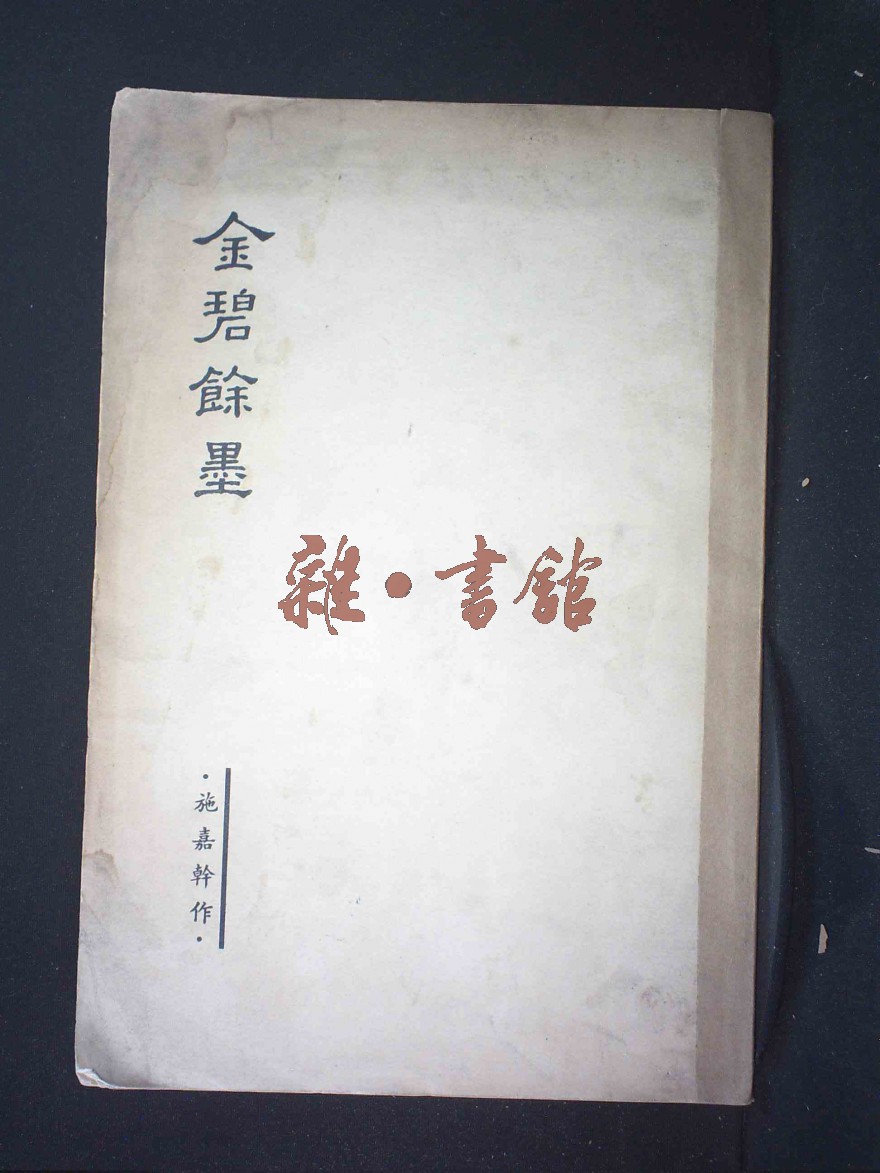 金碧餘墨
雜•書館
•施嘉幹作•